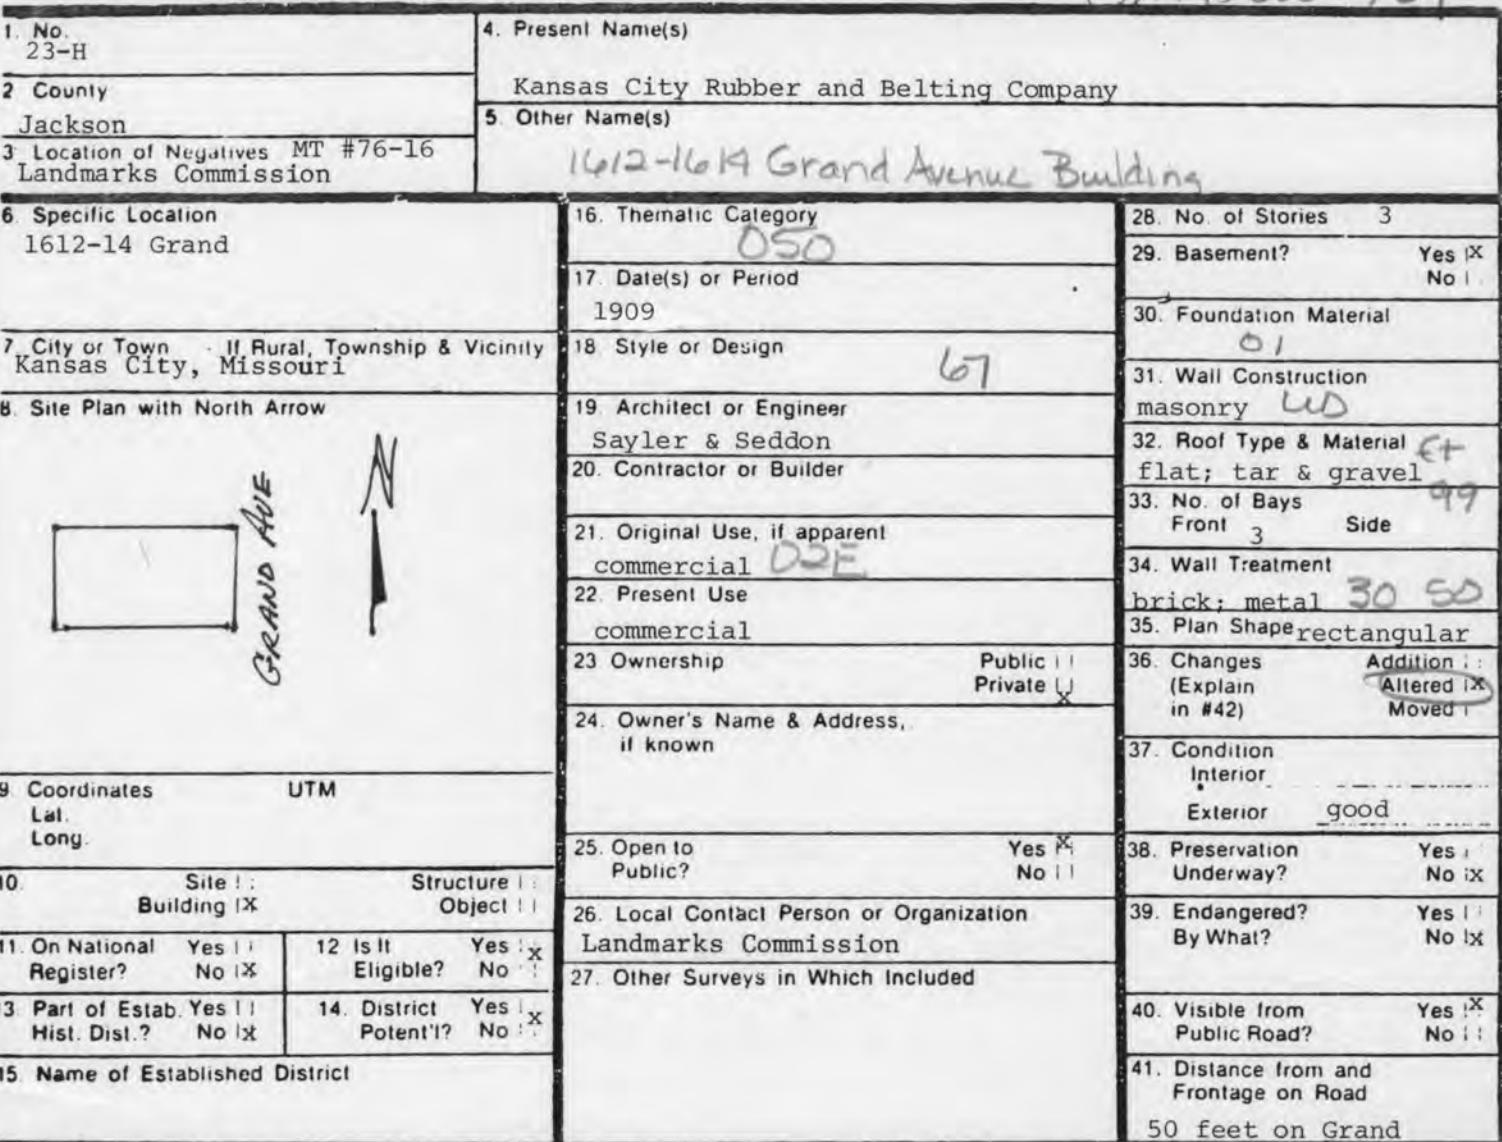 1. No.
23-H
2 County
Jackson
3 Location of Negatives MT #76-16
Landmarks Commission
4. Present Name(s)
Kansas City Rubber and Belting Company
5. Other Name(s)
1612-1614 Grand Avenue Building
6. Specific Location
1612-14 Grand
7. City or Town If Rural, Township & Vicinity
Kansas City, Missouri
8. Site Plan with North Arrow
GRAND AVE
N
9. Coordinates UTM
Lat.
Long.
10. Site Structure
Building X Object
11. On National Yes
Register? No X
12 Is It Yes X
Eligible? No
13 Part of Estab. Yes
Hist. Dist.? No X
14. District Yes X
Potent'l? No
15. Name of Established District
16. Thematic Category
050
17. Date(s) or Period
1909
18 Style or Design
67
19. Architect or Engineer
Sayler & Seddon
20. Contractor or Builder
21. Original Use, if apparent
commercial 02E
22. Present Use
commercial
23 Ownership Public
Private X
24. Owner's Name & Address,
if known
25. Open to Yes X
Public? No
26. Local Contact Person or Organization
Landmarks Commission
27. Other Surveys in Which Included
28. No. of Stories 3
29. Basement? Yes X
No
30. Foundation Material
01
31. Wall Construction
masonry
32. Roof Type & Material
flat; tar & gravel
99
33. No. of Bays
Front 3 Side
34. Wall Treatment
brick; metal 30 50
35. Plan Shape rectangular
36. Changes Addition
(Explain Altered X
in #42) Moved
37. Condition
Interior
Exterior good
38. Preservation Yes
Underway? No X
39. Endangered? Yes
By What? No X
40. Visible from Yes X
Public Road? No
41. Distance from and
Frontage on Road
50 feet on Grand